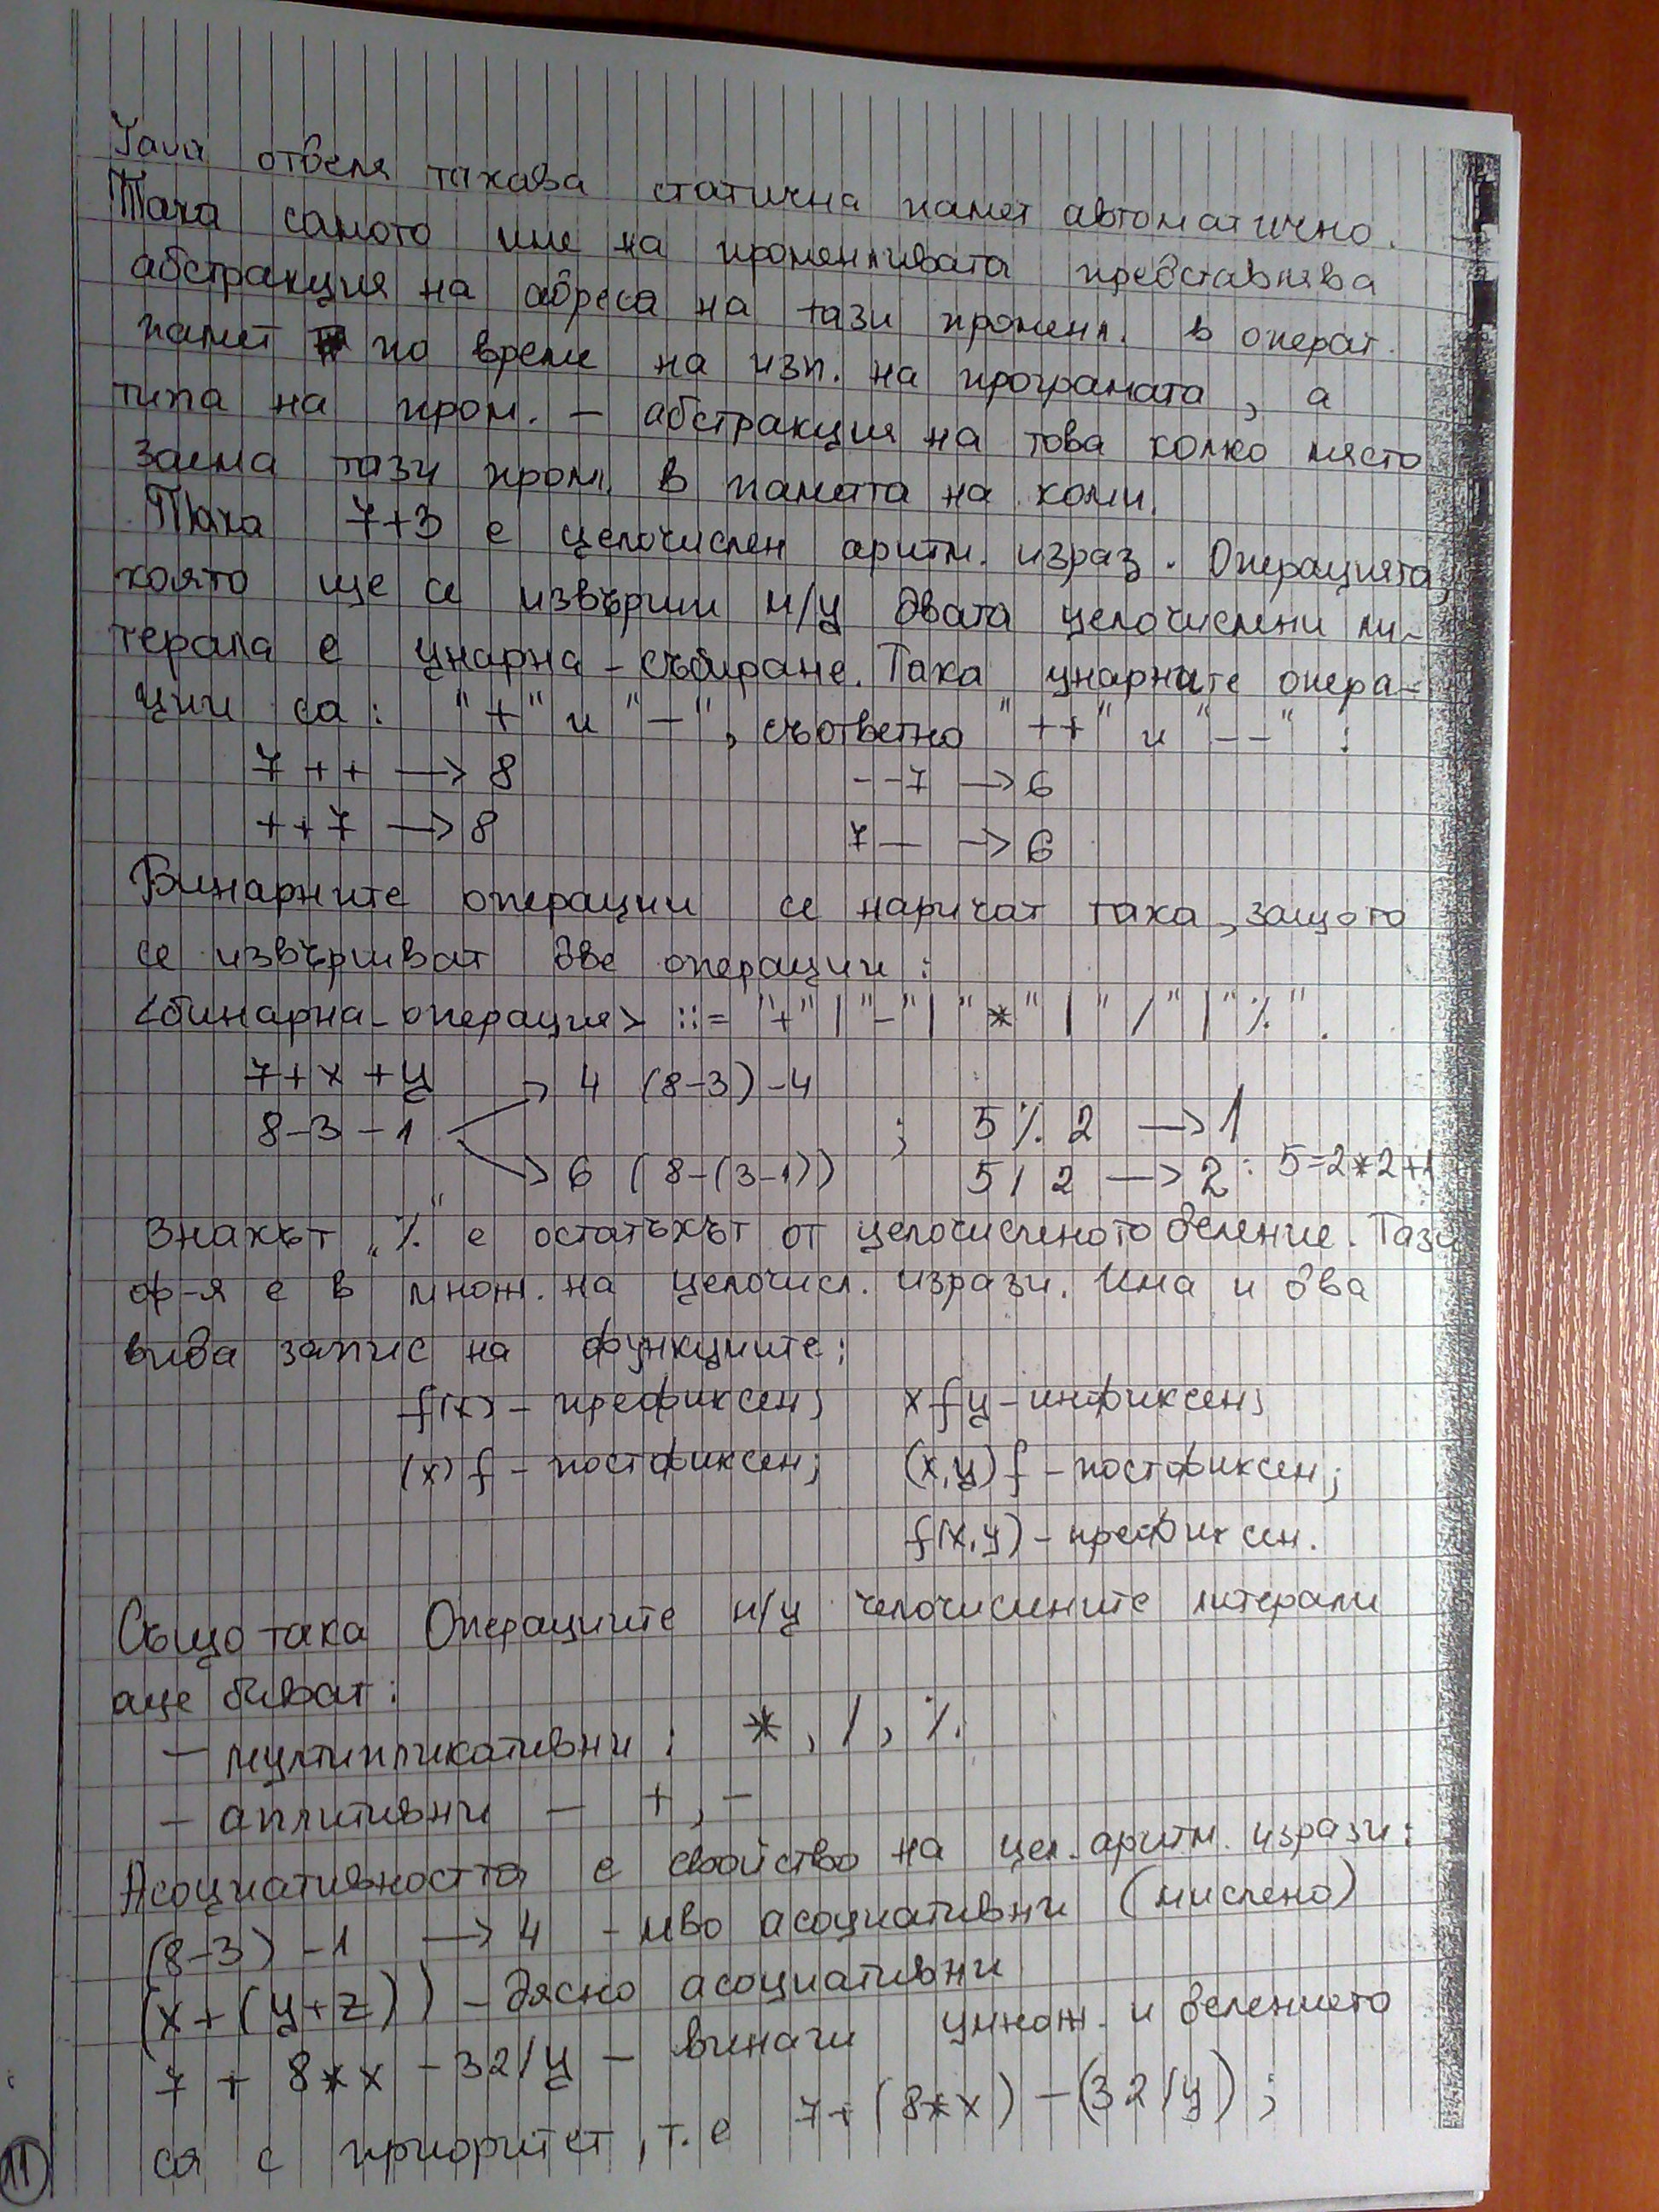 Java отделя такава статична памет автоматично.
Така самото име на променливата представлява
абстракция на адреса на тази променл. в операт.
памет по време на изп. на програмата, а
типа на пром. - абстракция на това колко място
заема тази пром. в паметта на комп.
Така 7+3 е целочислен аритм. израз. Операцията,
която ще се извърши м/у двата целочислени ли-
терала е унарна - събиране. Така унарните опера-
ции са: "+" и "-", съответно "++" и "--" :
7++ → 8 --7 → 6
++7 → 8 7-- → 6
Бинарните операции се наричат така, защото
се извършват две операции:
<бинарна_операция> ::= "+" | "-" | "*" | "/" | "%".
7+x+y → 4 (8-3)-4
8-3-1 ; 5 % 2 → 1
→ 6 (8-(3-1)) 5 / 2 → 2 : 5=2*2+1
Знакът „%" е остатъкът от целочисленото деление. Тази
ф-я е в множ. на целочисл. изрази. Има и два
вида запис на функциите:
f(x) - префиксен; x f y - инфиксен;
(x) f - постфиксен; (x,y) f - постфиксен;
f(x,y) - префиксен.
Също така Операциите м/у челочислените литерали
още биват:
- мултипликативни : *, /, %
- аплитивни - +, -
Асоциативността е свойство на цел. аритм. изрази:
(8-3) -1 → 4 - ляво асоциативни (мислено)
(x+(y+z)) - дясно асоциативни
7 + 8*x - 32/y - винаги умнож. и делението
са с приоритет, т.е 7+(8*x) - (32/y);
11